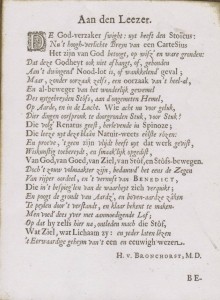 Aan den Leezer.
DE God-verzaker swight: nu heeft den Stoicus:
Nu't hoogh-verlichte Breyn van een Cartesius
Het zijn van God betoogt, op wisse en ware gronden:
Dat deze Godheyt ook niet afhangt, of, gebonden
Aan't dwingend' Nood-lot is, of wankelend' geval;
Maar, zonder oorzaak zelfs, een oorzaak van't heel-al,
En al-beweger van het wonderlijk gewemel
Des uytgebreyden Stofs, aan d'ongemeten Hemel,
Op Aarde, en in de Lucht. Wie acht nu voor geluk,
Dier dingen oorspronk te doorgronden Stuk, voor Stuk!
Die volg' Renatus geest, herlevende in Spinoze;
Die leeze uyt deze blaân Natuir-weets eêlste roze:
En proeve, 't geen zijn vlijdt heeft uyt dat werk gevist,
Wiskunstig toebereydt, en smaakelijk opgedist,
Van God, van Goed, van Ziel, van Stof, en Stofs-bewegen.
Doch't zoeve volmaakter zijn, bedauwd het eens de Zegen
Van rijper oordeel, en 't vernuft van BENEDICT,
Die in't befpieg'len van de waarheyt zich verquikt;
En poogt de grondt van Aardz', en boven-aardze zaken
Te peylen door 't verstandt, en klaar bekent te maken.
Men voed' dees yver met aanmoedigend Lof;
Op dat hy zelfs hier na, ontleden mach die Stof,
Wat Ziel, wat Lichaam zy: en yeder laten leezen
't Eerwaardige geheym van 't een en eeuwigh wezen.
H. v. BRONCHORST, M.D.
BE-